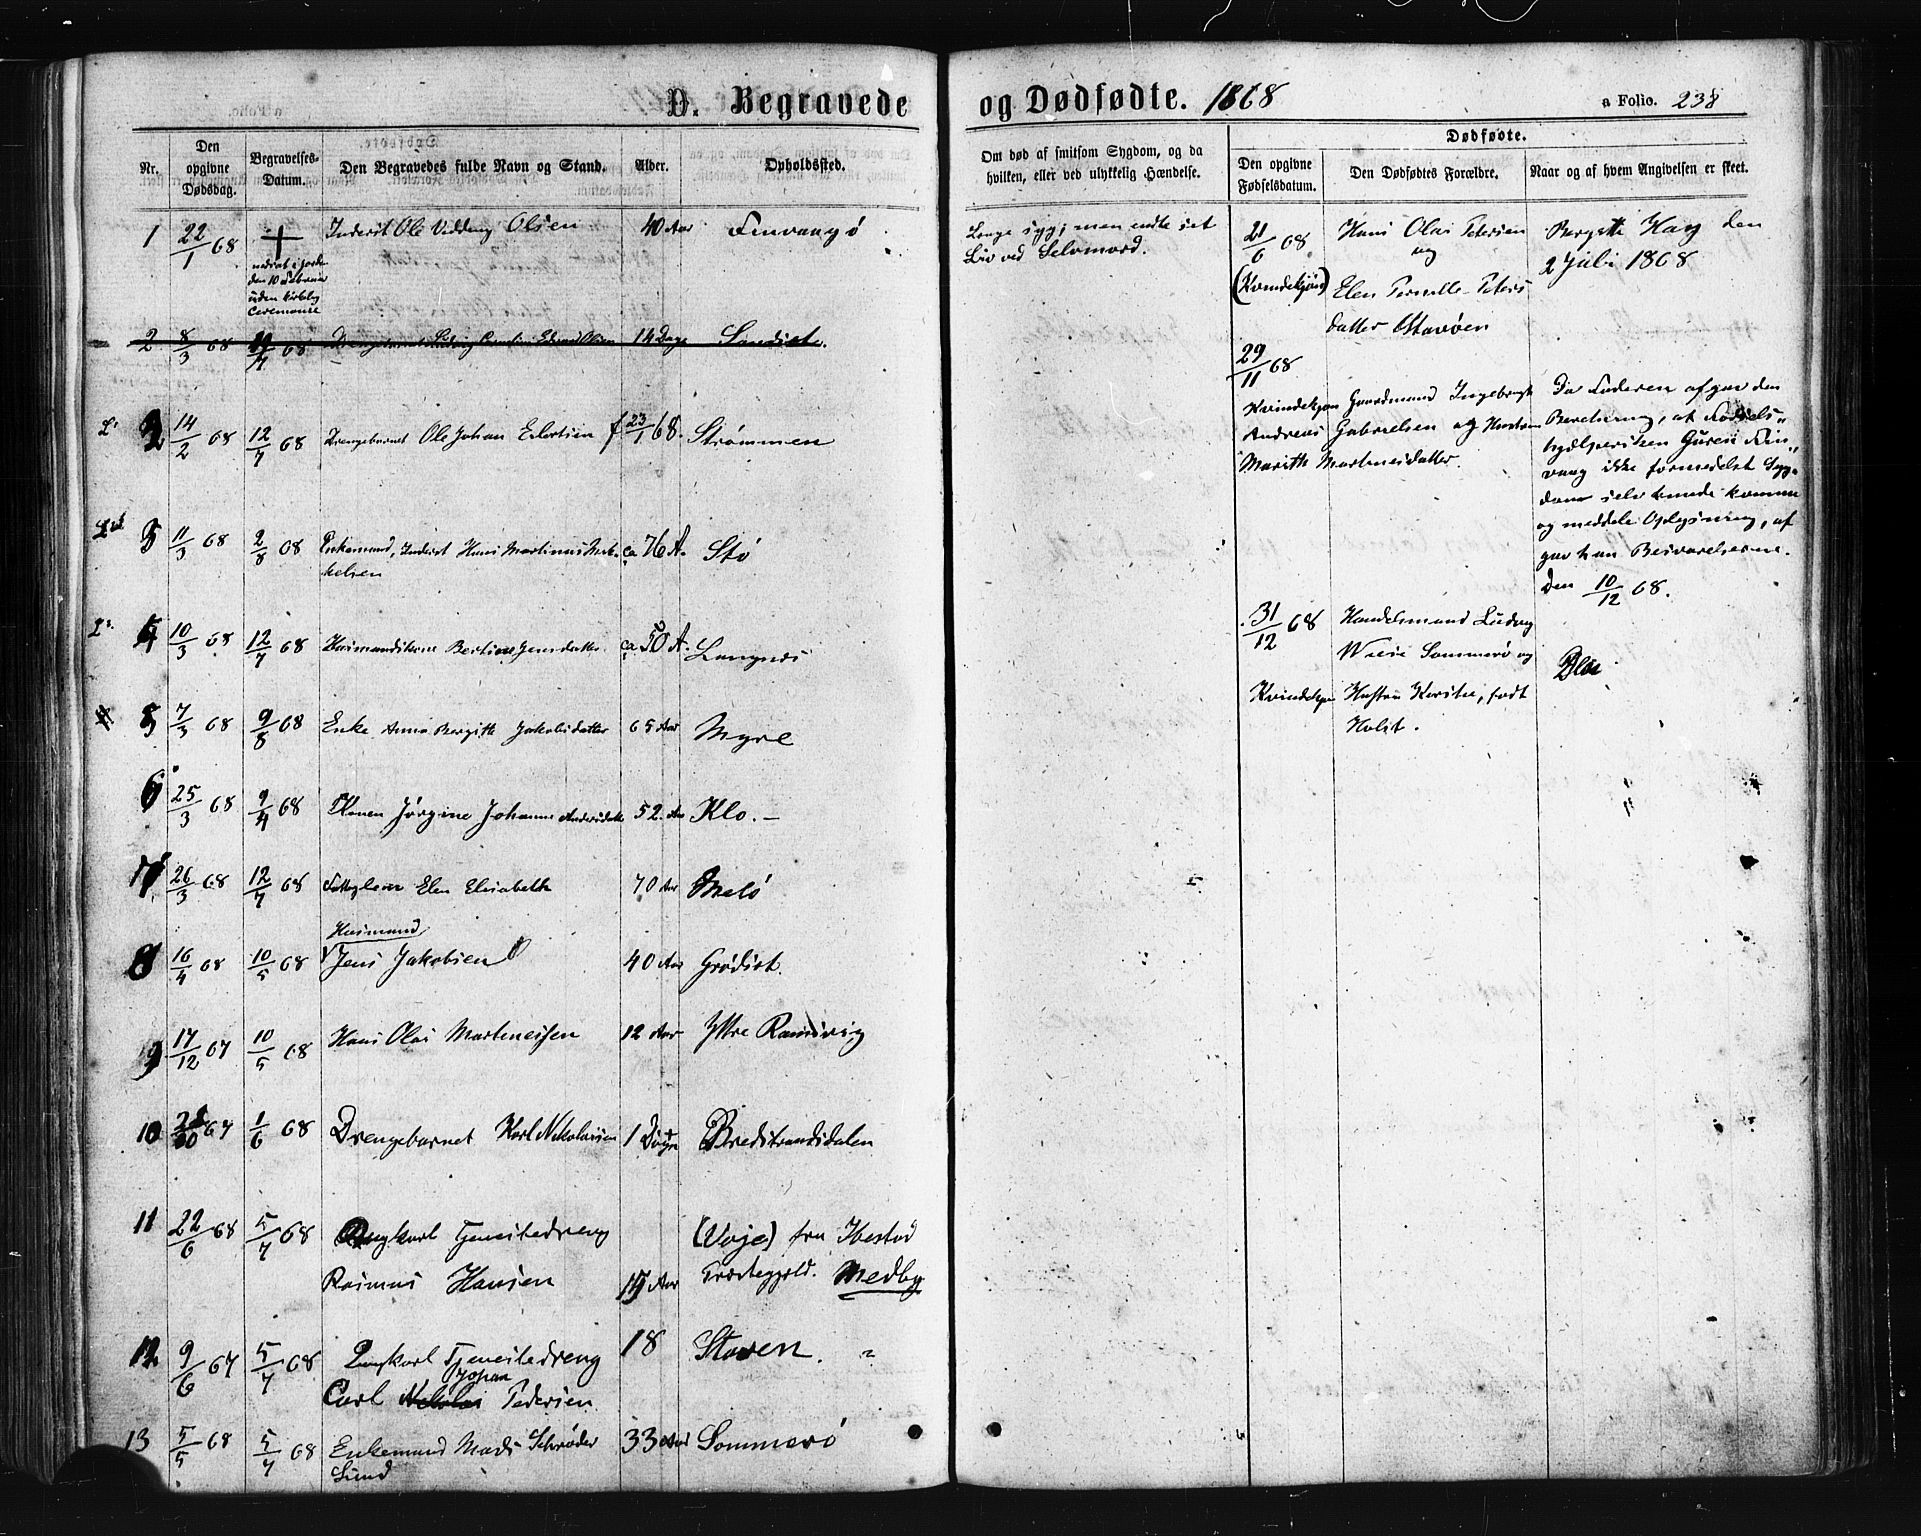 D. Begravede
og Dødfødte. 1868
a Folio. 238
Nr.
Den opgivne Dødsdag.
Begravelses-Datum.
Den Begravedes fulde Navn og Stand.
Alder.
Opholdssted.
Om død af smitsom Sygdom, og da
hvilken, eller ved ulykkelig Hændelse.
Dødfødte.
Den opgivne Fødselsdatum.
Den Dødfødtes Forældre.
Naar og af hvem Angivelsen er skeet.
1 22/1 68 + Inderst Ole Olsen 40 Aar Finvaagø
nedsat i Jorden
den 10 Februar
uden kirkelig
Ceremonie
2 8/3 68 68 Drengebarnet Ludvig Olsen 14 Dage
14/2 68 12/7 68 Drengebarnet Ole Johan Eilertsen f 23/1 68. Strømmen
11/3 68 2/8 68 Enkemand, Inderst Hans Martinus Mik-
kelsen ca 76 A. Stø
4 10/3 68 12/7 68 Husmandskone Jensdatter ca 50 A. Langnæs
5 7/3 68 9/8 68 Enke Anna Bergitte Jakobsdatter 65 Aar Myre
6 25/3 68 9/4 68 Konen Jørgine Johanna Andersdatt 52 Aar Klo. —
7 26/3 68 12/7 68 Elen Elisabeth 70 Aar Melø
Husmand
8 16/4 68 10/5 68 Jens Jakobsen 40 Aar Grødset.
9 17/12 67 10/5 68 Hans Olai Martinessen 12 Aar Yttre Ramsvig
10 67 1/6 68 Drengebarnet Karl Nikolaisen 1 Døgn Bredstrandsdalen
11 22/6 68 5/7 68 Ungkarl Tjenestedreng (Voje) fra Ibestad
Rasmus Hansen 19 Aar Præstegjeld. Medby
12 9/6 67 5/7 68 Ungkarl Tjenestedreng 18 Staven. "
Johan
Carl Nikolai Pedersen
13 5/5 68 5/7 68 Enkemand Mads Schrøder 33 Aar Sommerø
Lund
Længe syg; men endte sit
Liv ved Selvmord.
21/6 68 Hans Olai Petersen
og
(Kvindekjøn) Elen Pernille Peters
datter Stavøen
Bergitte Hay den
2 Juli 1868
29/11 68
Kvindekjøn Gaardmand Ingebrigt
Andreas Gabrielsen og Hustru
Marith Martinesdatter.
Da Faderen afgav den
Beretning, at Fødsels-
hjælpersken Guren Fin-
vaag ikke formedelst Syg-
dom selv kunde komme
og meddele Oplysning, af
gav han Besvarelserne.
Den 10/12 68.
31/12 68 Handelsmand Ludvig
Sommerø og
Kvindekjøn Hustru Kirstine, født
Holst.